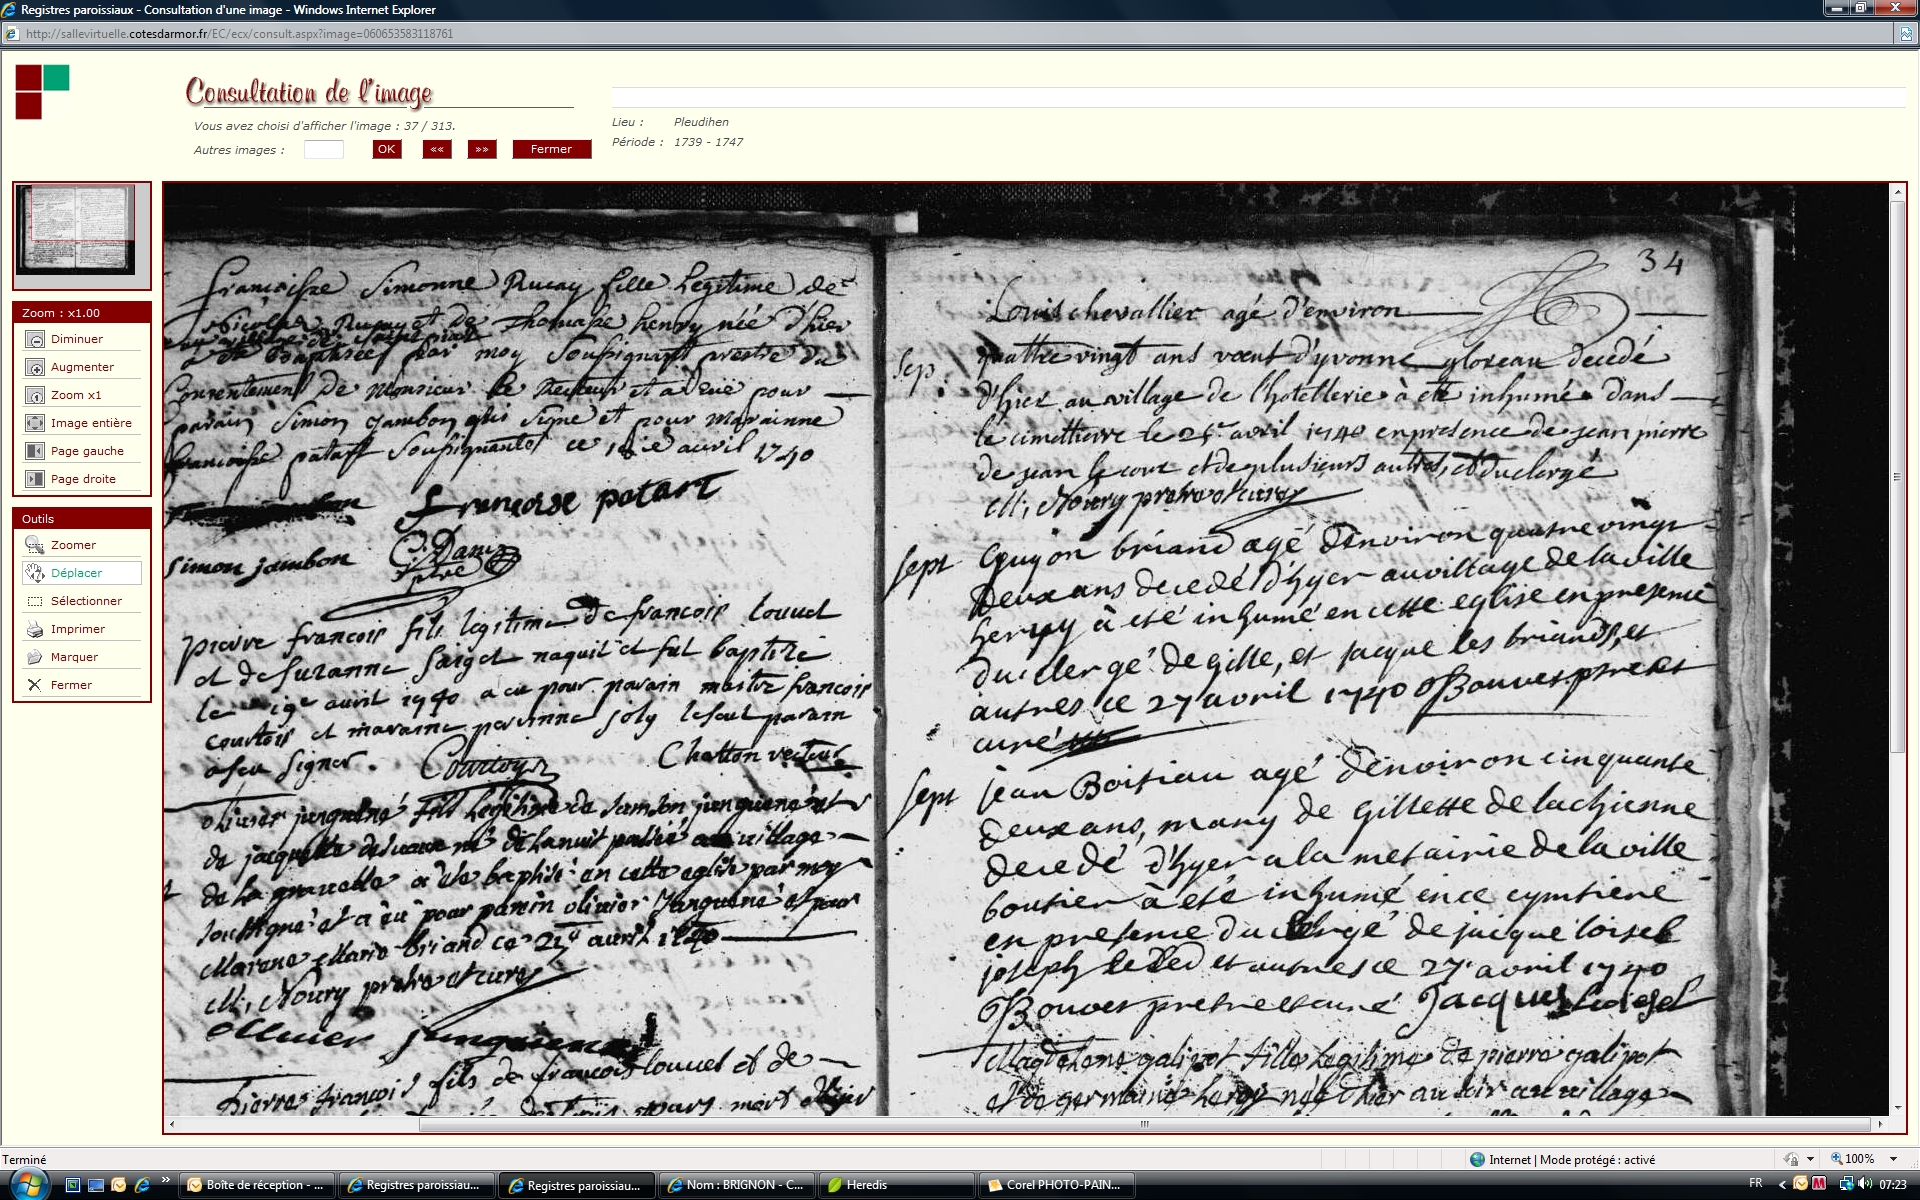 Registres paroissiaux - Consultation d'une image - Windows Internet Explorer
http://sallevirtuelle.cotesdarmor.fr/EC/ecx/consult.aspx?image=060653583118761
Consultation de l'image
Vous avez choisi d'afficher l'image : 37 / 313.
Autres images :
OK
««
»»
Fermer
Lieu : Pleudihen
Période : 1739 - 1747
Zoom : x1.00
Diminuer
Augmenter
Zoom x1
Image entière
Page gauche
Page droite
Outils
Zoomer
Déplacer
Sélectionner
Imprimer
Marquer
Fermer
françoise Simonne Rucay fille legitime de
Nicolas Rucay et de Thomase henry née d'hier
a été baptisée par moy soussignant prestre du
consentement de Monsieur le Recteur et a eue pour
parain Simon jambon qui signe et pour maraine
françoise patart soussignante ce 18e avril 1740
françoise patart
simon jambon
pierre francois fils legitime de francois louuel
et de suzanne saiget naquit et fut baptizé
le 19e auril 1740 a eu pour parain maitre francois
courtois et maraine perinne joly le seul parain
a seu signer. Courtoys Chatton recteur
olivier junguené fils legitime de jambon junguené et
de jacquette né de la nuit passé au village
de la gravelle a été baptisé en cette eglise par moy
soussigné et a eu pour parain olivier junguené et pour
Marene Marie briand ce 21e auril 1740
M. Noury pretre et curé
ollivier junguené
pierre francois fils de francois louuel et de
34
Louis chevallier agé d'environ
sep. quattre vingt ans vœuf d'yvonne gloreau decedé
d'hier au village de l'hotellerie à eté inhumé dans
le cimettierre le 25e avril 1740 en presence de jean pierre
de jean le cour et de plusieurs autres, et du clergé
M. Noury pretre et curé
sept Guyon briand agé d'environ quatre vingt
deux ans decedé d'hyer au village de la ville
hervy à eté inhumé en cette eglise en presence
du clergé de gille, et jacque les briands, et
autres ce 27 avril 1740 Bouvet pretre et
curé
sept jean Boisiau agé d'environ cinquante
deux ans, mary de gillette de lachienne
decedé d'hyer a la metairie de la ville
boutier à eté inhumé en ce cymtiere
en presence du clergé de jacque loisel
joseph et autres ce 27e avril 1740
Bouvet pretre et curé Jacques Loisel
Magdelene galipot fille legitime de pierre galipot
et de germaine hervy née d'hier au soir au village
Terminé
Internet | Mode protégé : activé
100%
Boîte de réception - ...
Registres paroissiau...
Registres paroissiau...
Nom : BRIGNON - C...
Heredis
Corel PHOTO-PAIN...
FR
07:23